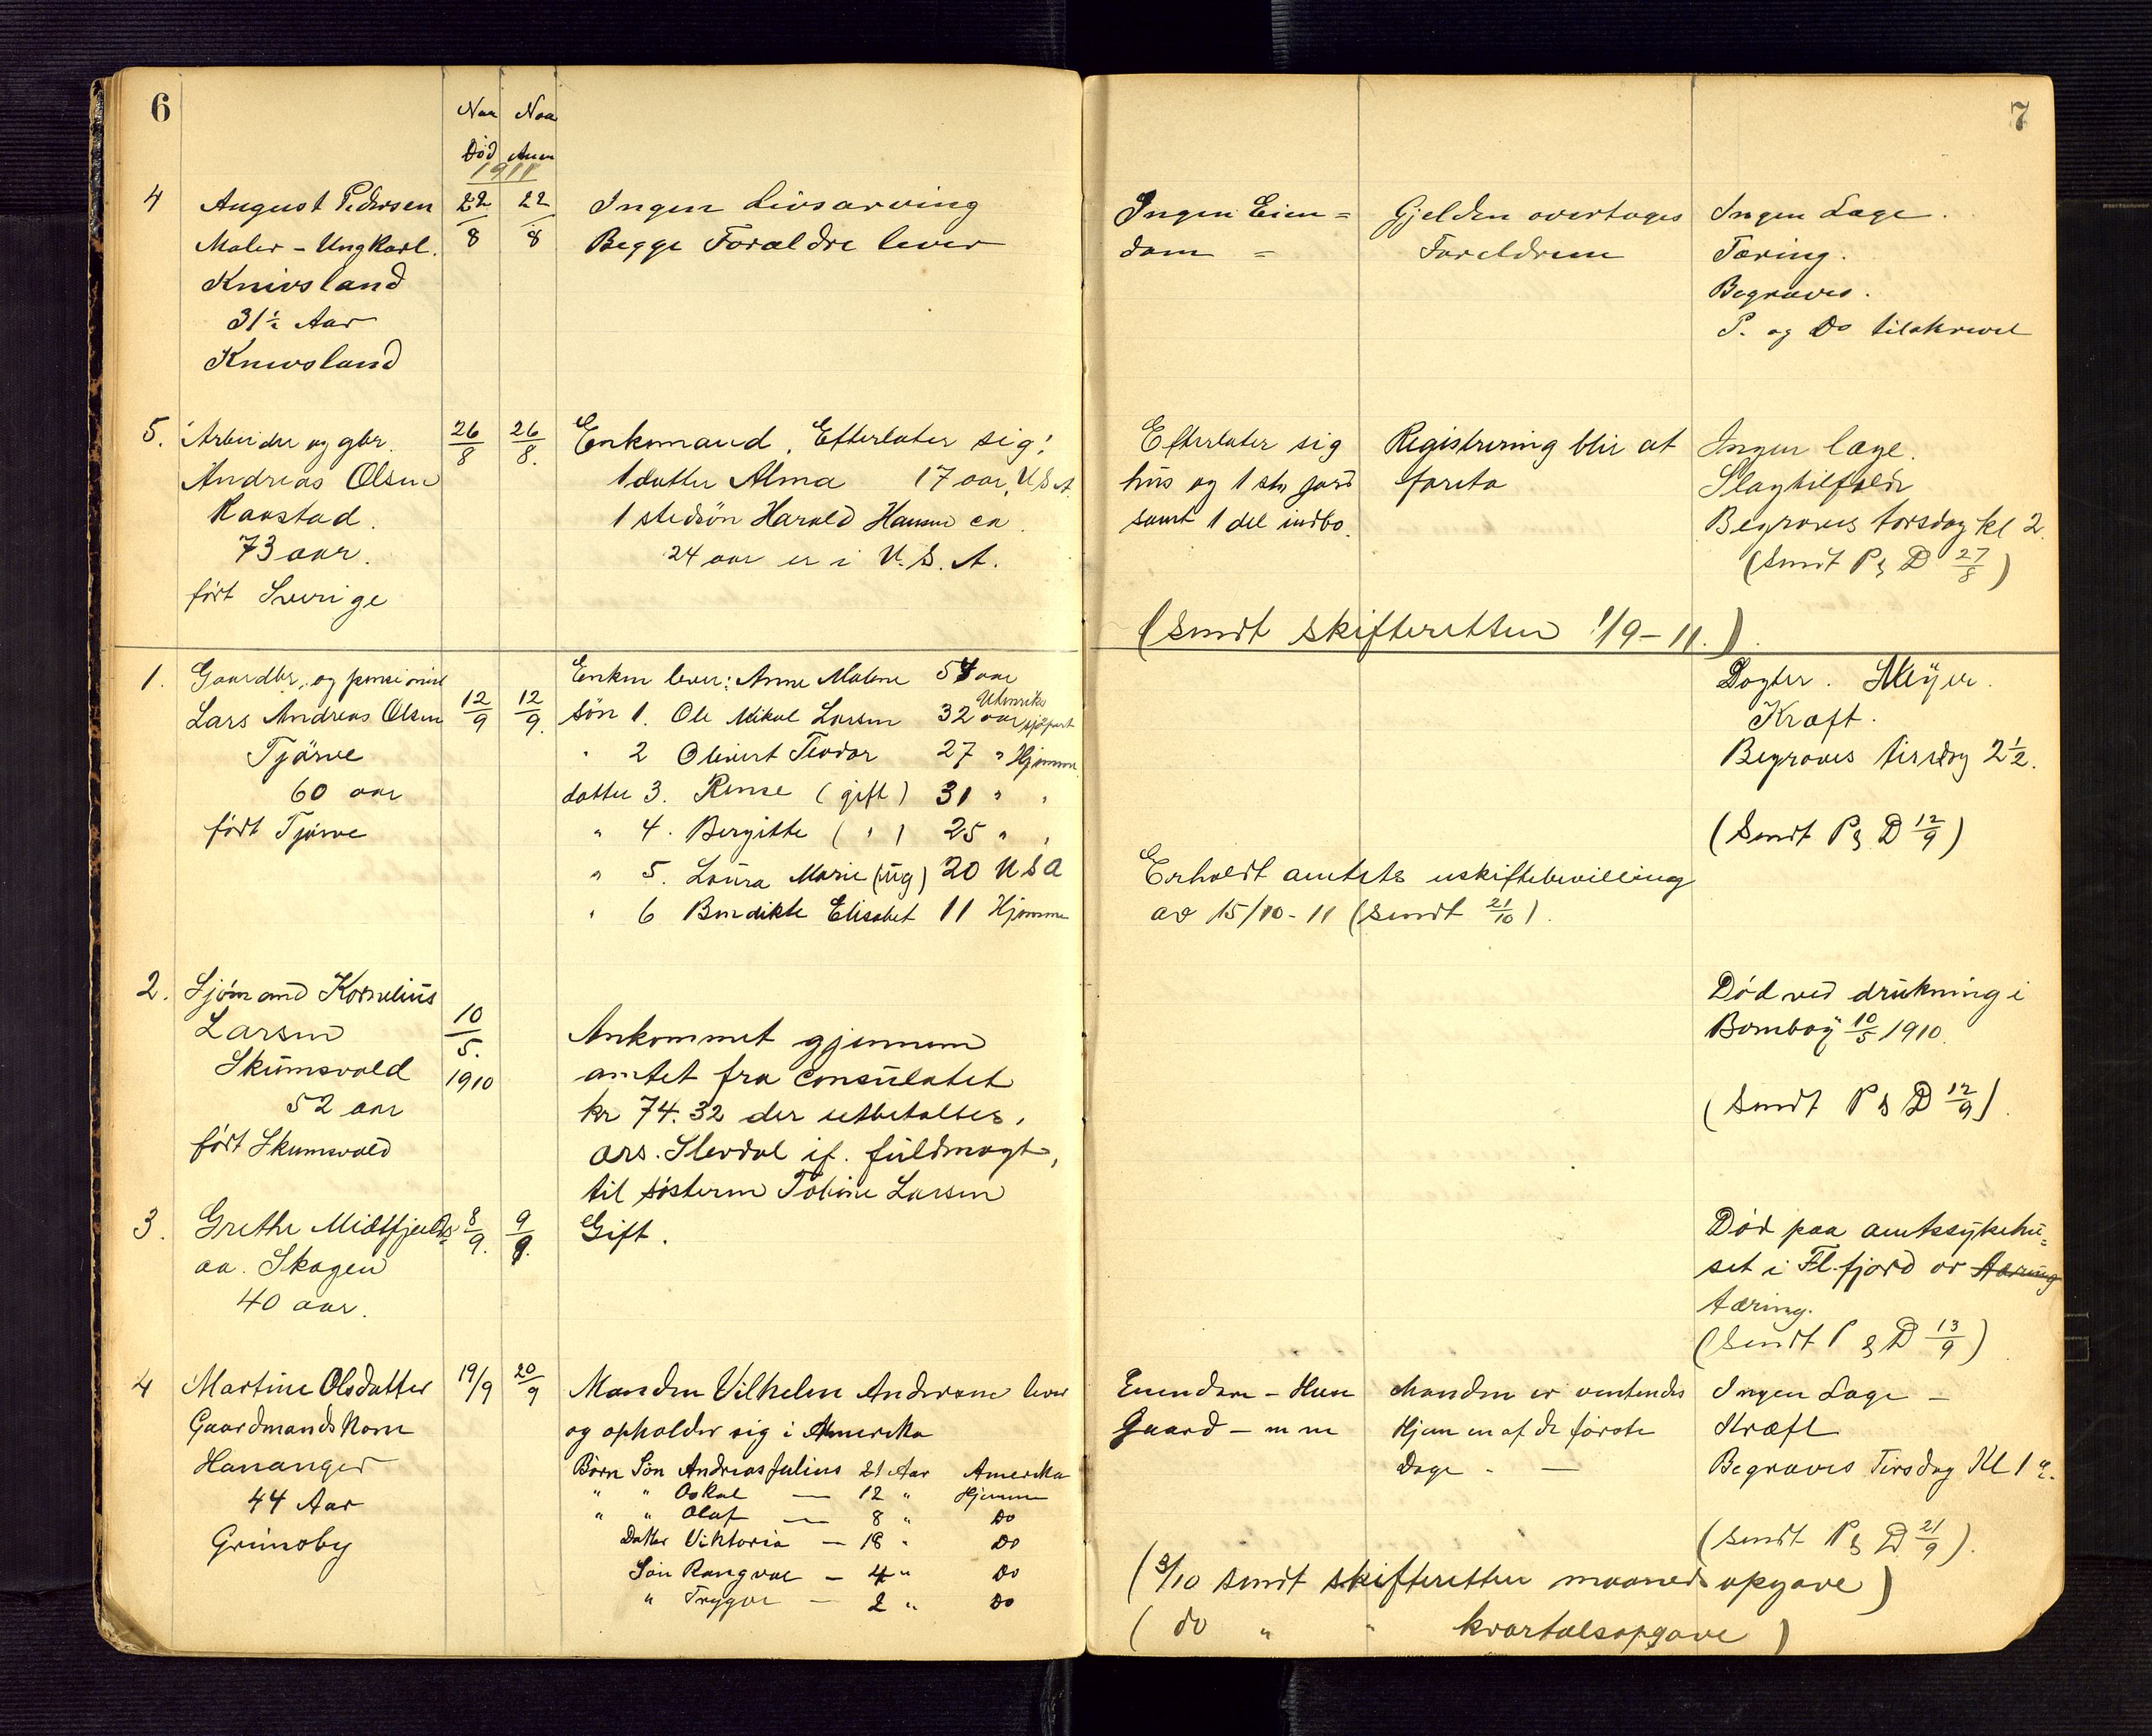 6
Naa Naa
Död Anm
1911
4 August Pedersen 22/8 22/8 Ingen Livsarving
Maler - Ungkarl. Begge Forældre lever
Knivsland
31½ Aar
Knivsland
5. Arbeider og gbr. 26/8 26/8. Enkemand. Efterlater sig:
Andreas Olsen 1 datter Alma 17 aar, U.S.A.
Ravstad. 1 stedsön Harald Hansen ca.
73 aar. 24 aar er i U.S.A.
fört Sverige
1. Gaardbr. og pensionist Enken lever: Anne Malene 54 aar
Lars Andreas Olsen 12/9 12/9. sön 1. Ole Mikal Larsen 32 aar Utenriks sjöfart
Tjörve " 2 Olevert Teodor 27 " Hjemme
60 aar datter 3. Rense (gift) 31 " "
fört Tjörve " 4. Bergitte ( " ) 25 " "
" 5. Laura Marie (ug) 20 USA
" 6 Bendikte Elisabet 11 Hjemme
2. Sjömand Kornelius
Larsen 10/5. Ankommet gjennem
Skumsvold 1910 amtet fra consulatet
52 aar kr 74.32 der utbetaltes,
fört Skumsvold ars. Slevdal if. fuldmagt,
til sösteren Tobine Larsen
3. Grethe Midtfjelds= 8/9. 9/9. Gift.
aa. Skagen
40 aar.
4 Martine Olsdatter 19/9 20/9 Manden Vilhelm Andersen lever
Gaardmandskone og opholder sig i Amerika
Hananger Börn Sön Andreas Julius 21 Aar Amerika
44 Aar " " Oskal — 12 " Hjemme
" " Olaf — 8 " Do
Grimsby Datter Viktoria — 18 " Do
Sön Rangval — 4 " Do
" Trygve — 2 " Do
7
Ingen Eien= Gjelden overtages Ingen Læge.
dom = Foreldrene Tæring.
Begraves.
P. og Do tilskrevet
Efterlater sig Registrering blir at Ingen læge.
hus og 1 stk jord foreta Slagtilfælde
samt 1 del indbo. Begraves torsdag kl 2.
(sendt P & D 27/8)
(sendt skifteretten 1/9-11.)
Dogter. Meÿer.
Kræft.
Begraves tirsdag 2½.
(sendt P & D 12/9)
Erholdt amtets uskiftebevilling
av 15/10-11 (sendt 21/10).
Död ved drukning i
Bomboÿ 10/5 1910.
(sendt P & D 12/9).
Död paa amtssykehu=
set i Fl.fjord av tæring
tæring.
(sendt P & D 13/9)
Eiendom - Hus Manden er ventendes Ingen Læge -
Gaard - m m Hjem en af de förste Kræft
Dage . — Begraves Tirsdag Kl 1
(sendt P & D 21/9).
(3/10 sendt skifteretten maanedsopgave)
( do " " kvartalsopgave )